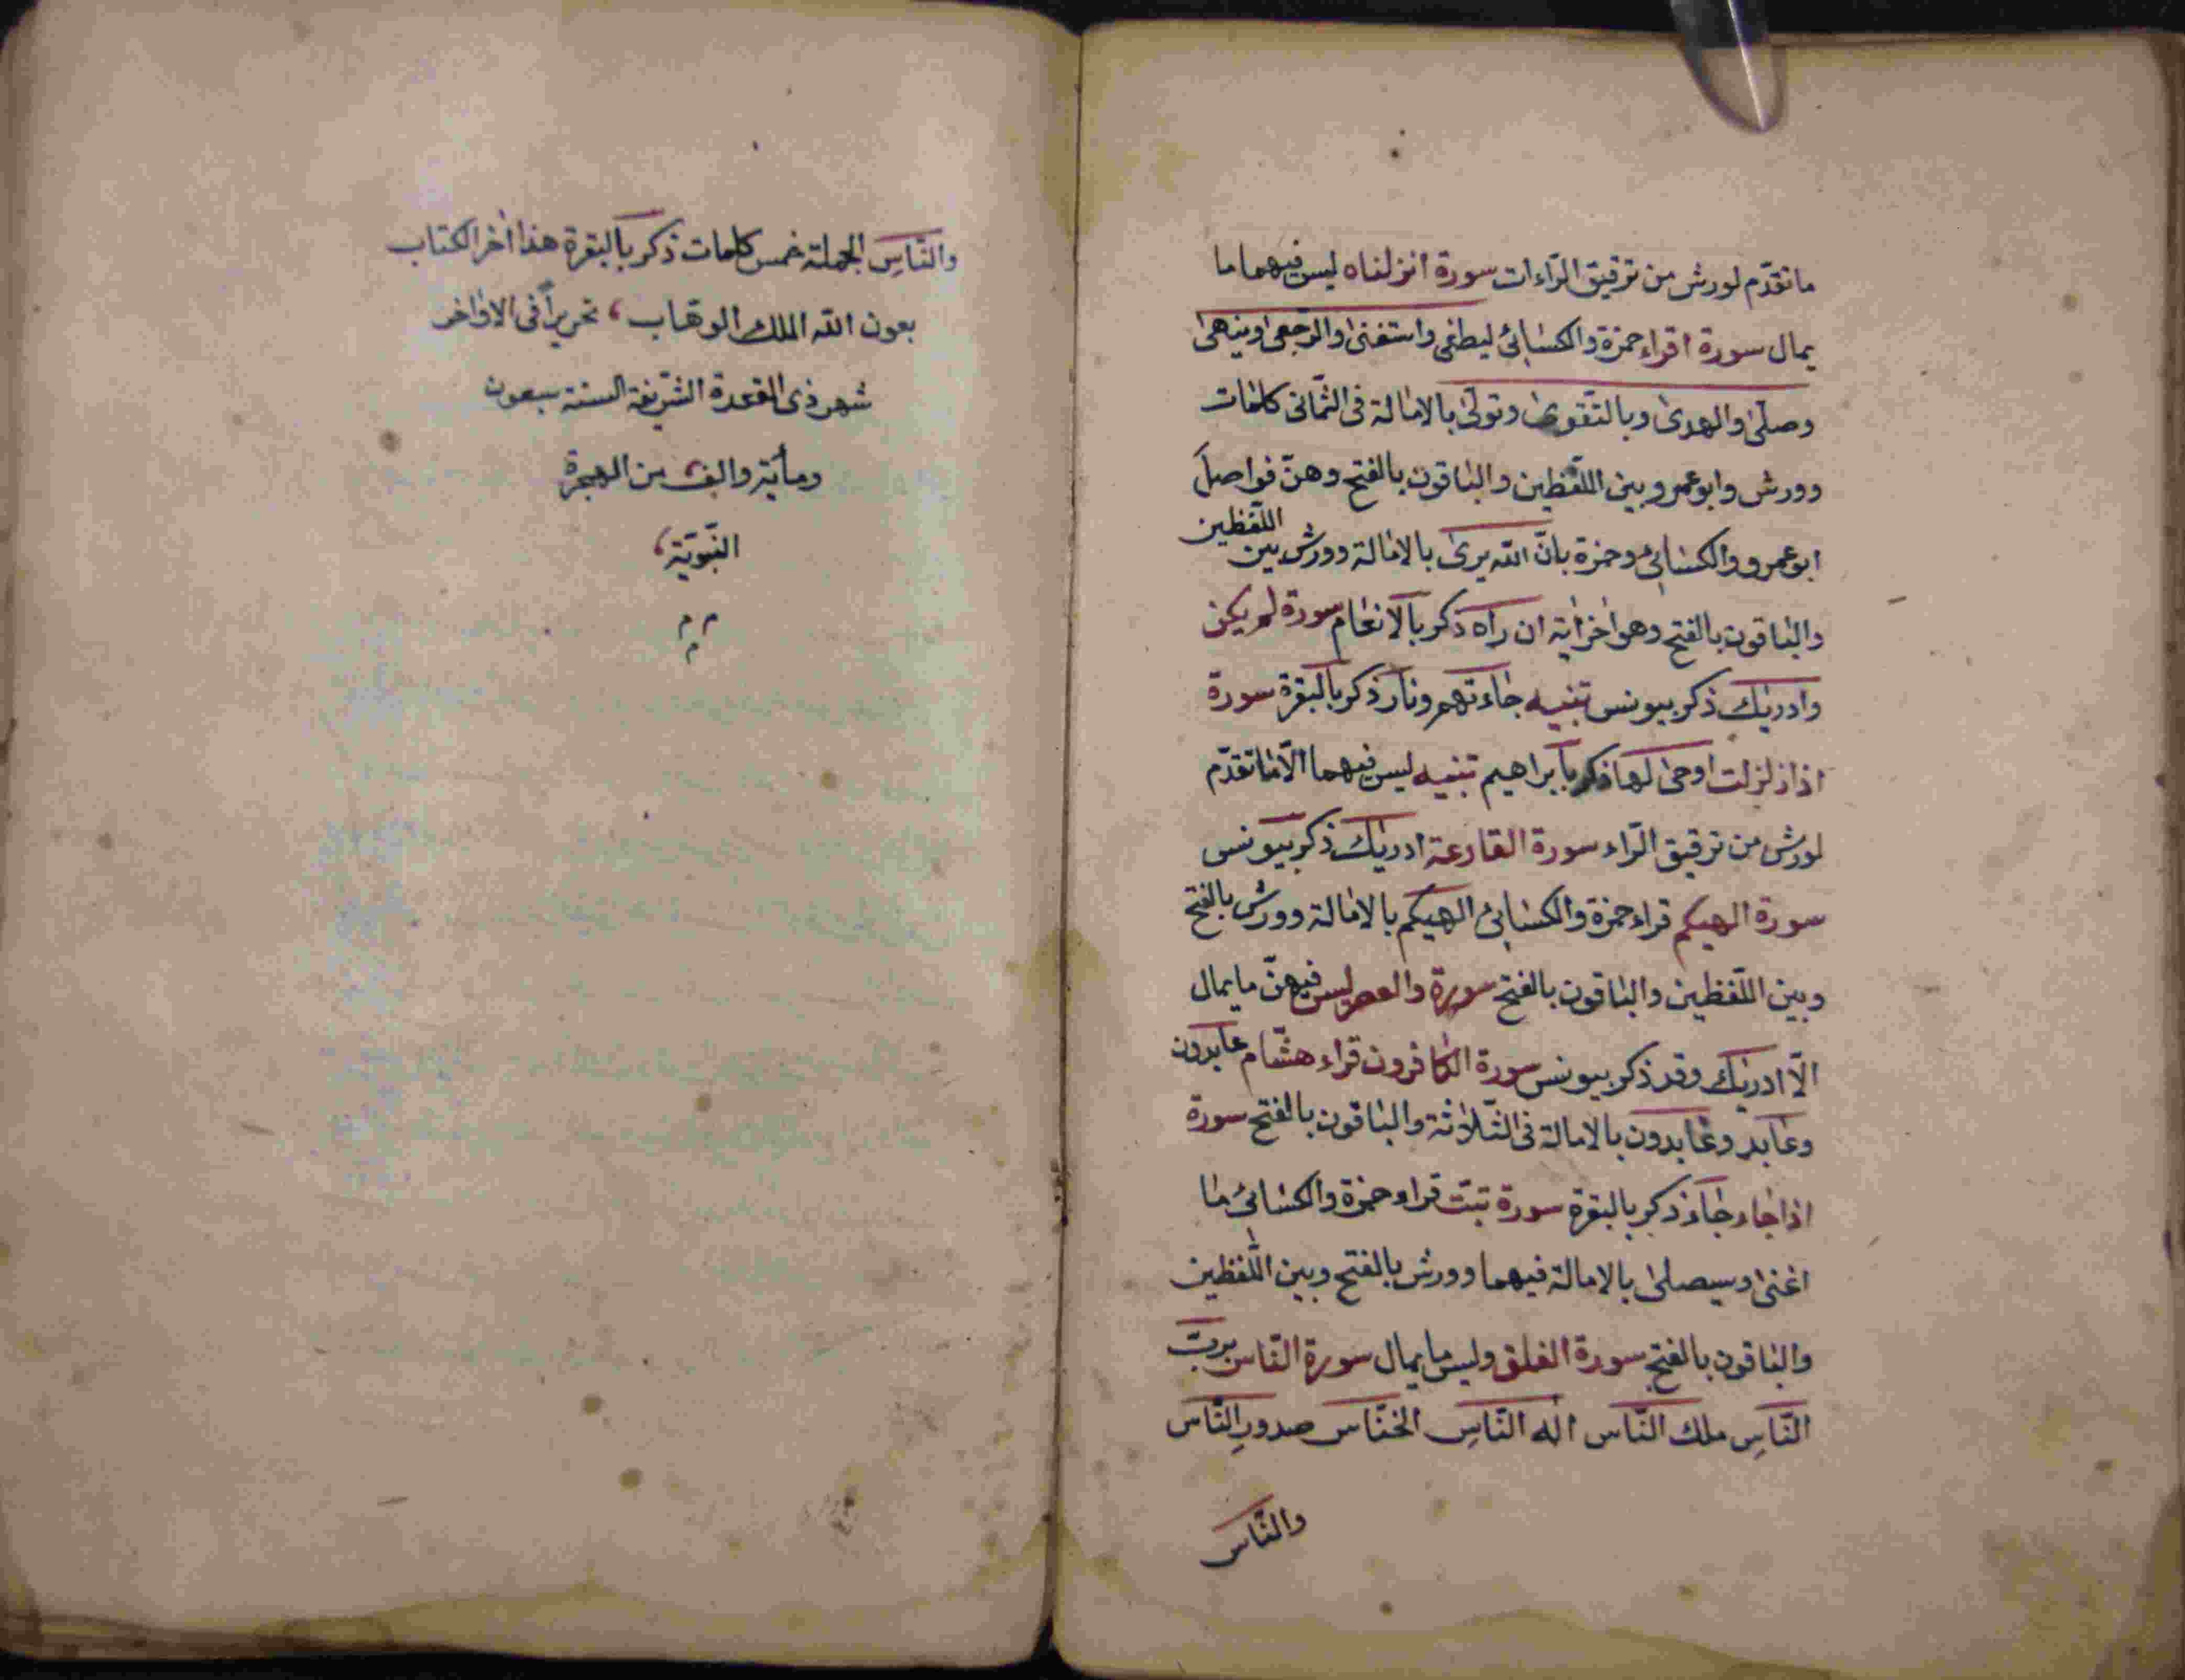 ما تقدّم لورش من ترقيق الرّاءات سورة انزلناه ليس فيهما ما
يمال سورة اقراء حمزة والكسائي ليطغى واستغنى والرّجعى وينهى
وصلّى والهدى وبالتّقوى وتولّى بالامالة فى الثّمانى كلمات
وورش وابو عمرو بين اللّفظين والباقون بالفتح وهنّ فواصل
ابو عمرو والكسائى وحمزة بانّ الله يرى بالامالة وورش بين اللّفظين
والباقون بالفتح وهو اخر اية ان راه ذكر بالانعام سورة لم يكن
وادريك ذكر بيونس تنبيه جاءتهم ونار ذكر بالبقرة سورة
اذا زلزلت اوحى لها ذكر بابراهيم تنبيه ليس فيهما الّا ما تقدّم
لورش من ترقيق الرّاء سورة القارعة ادريك ذكر بيونس
سورة الهيكم قراء حمزة والكسائى الهيكم بالامالة وورش بالفتح
وبين اللّفظين والباقون بالفتح سورة والعصر ليس فيهنّ ما يمال
الّا ادريك وقد ذكر بيونس سورة الكافرون قراء هشام عابدون
وعابد وعابدون بالامالة فى الثّلاثة والباقون بالفتح سورة
اذا جاء جاء ذكر بالبقرة سورة تبّت قراء حمزة والكسائى ما
اغنى وسيصلى بالامالة فيهما وورش بالفتح وبين اللّفظين
والباقون بالفتح سورة الفلق وليس ما يمال سورة النّاس بربّ
النّاسِ ملك النّاس اله النّاسِ الخنّاس صدورِ النّاس
والنّاس
والنّاسِ الجملة خمس كلمات ذكر بالبقرة هذا اخر الكتاب
بعون الله الملك الوهّاب، تحريراً فى الاواخر
شهر ذى القعدة الشّريفة السنة سبعون
ومأية والف من الهجرة
النّبويّة،